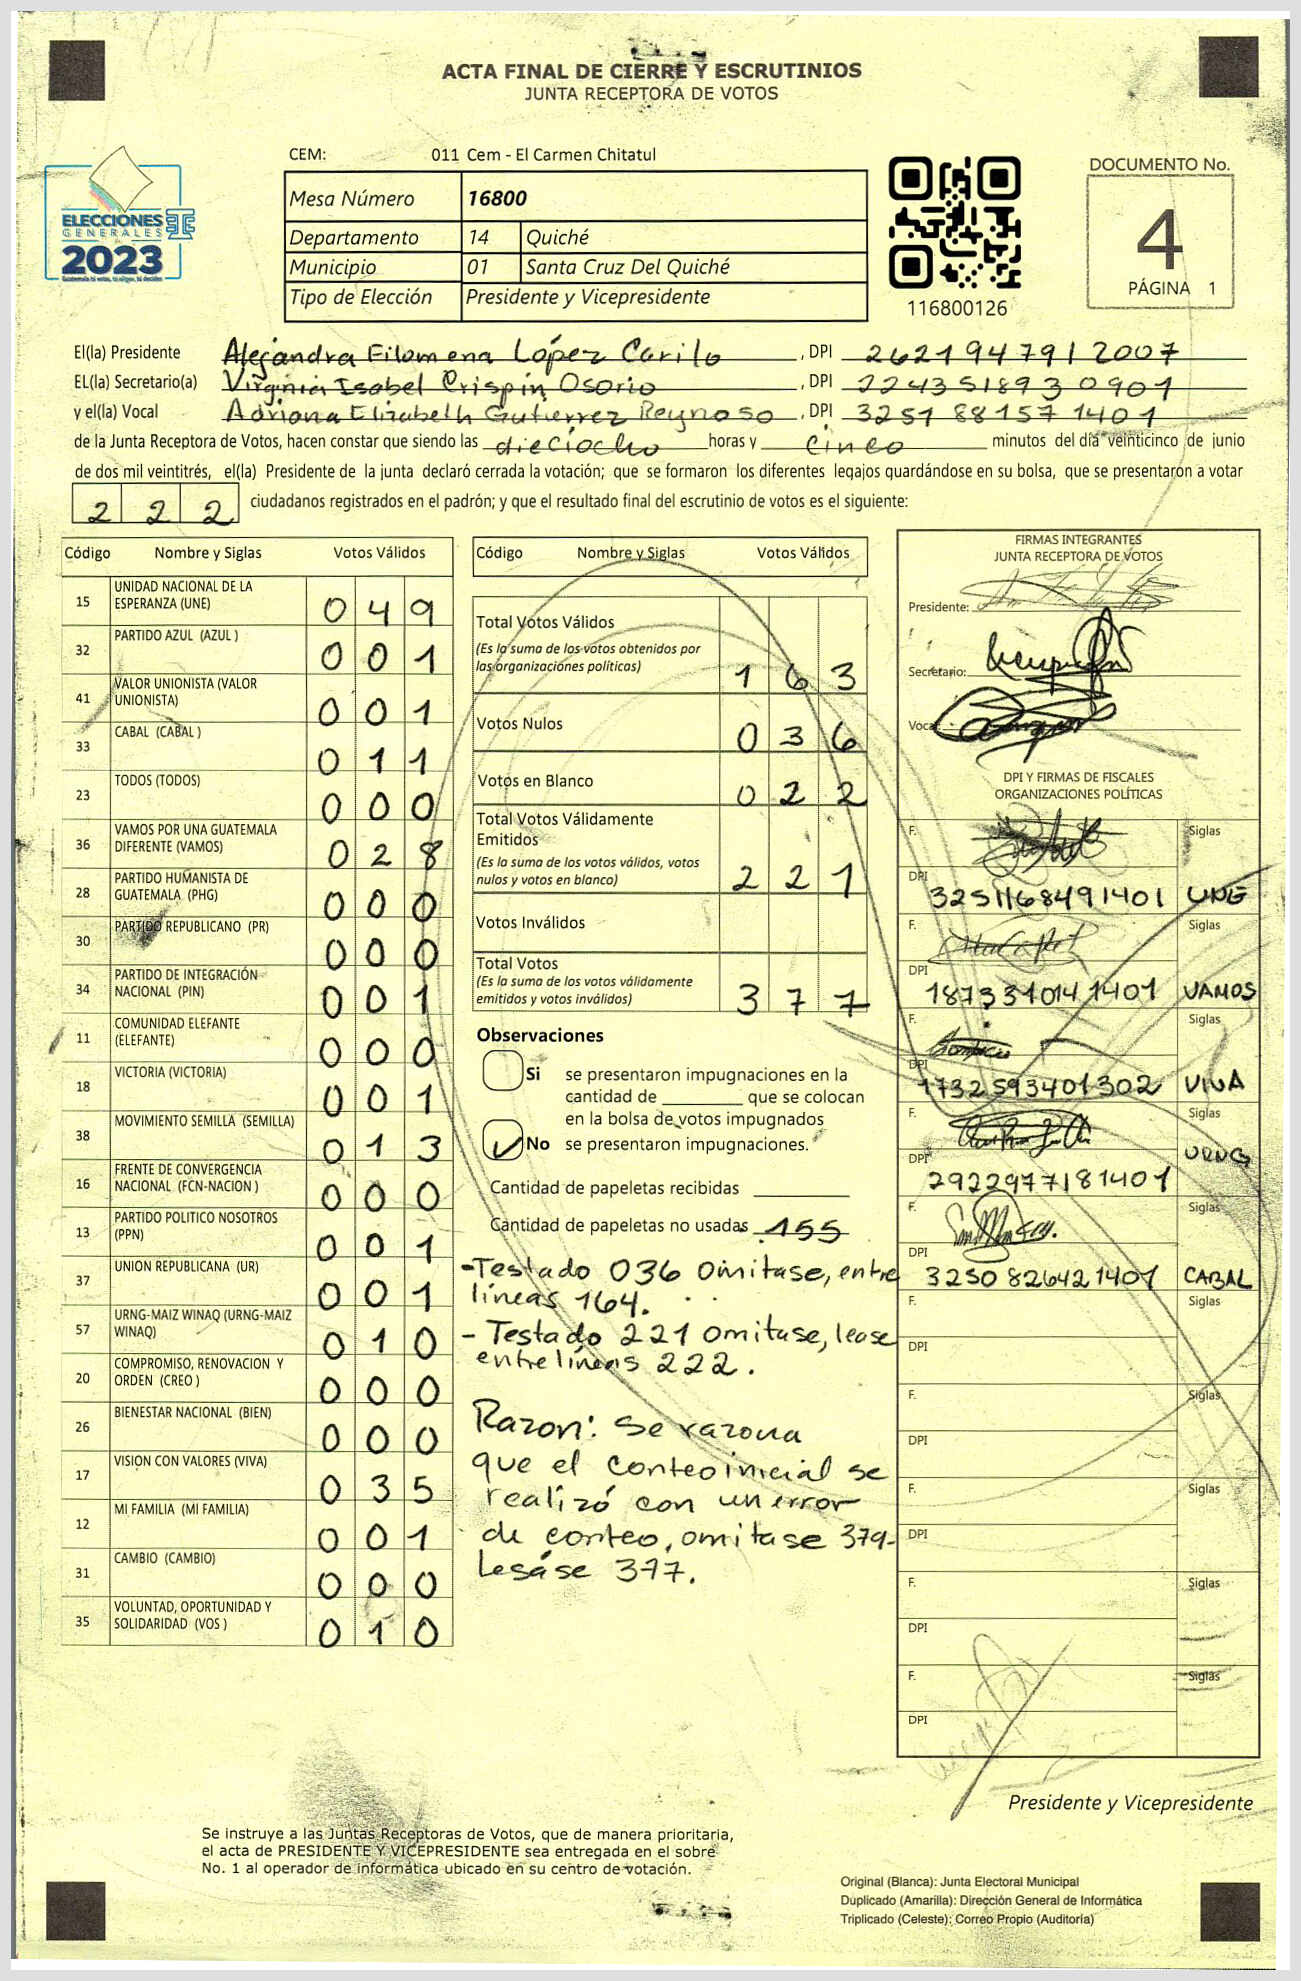 ACTA FINAL DE CIERRE Y ESCRUTINIOS
JUNTA RECEPTORA DE VOTOS
CEM: 011 Cem - El Carmen Chitatul
Mesa Número 16800
Departamento 14 Quiché
Municipio 01 Santa Cruz Del Quiché
Tipo de Elección Presidente y Vicepresidente
ELECCIONES
GENERALES
2023
116800126
DOCUMENTO No.
4
PÁGINA 1
El(la) Presidente Alejandra Filomena López Carilo , DPI 2621947912007
EL(la) Secretario(a) Virginia Isabel Crispín Osorio , DPI 2243518930901
y el(la) Vocal Adriana Elizabeth Gutierrez Reynoso , DPI 3251881571401
de la Junta Receptora de Votos, hacen constar que siendo las dieciocho horas y cinco minutos del día veinticinco de junio
de dos mil veintitrés, el(la) Presidente de la junta declaró cerrada la votación; que se formaron los diferentes legajos quardándose en su bolsa, que se presentaron a votar
222 ciudadanos registrados en el padrón; y que el resultado final del escrutinio de votos es el siguiente:
Código Nombre y Siglas Votos Válidos
15 UNIDAD NACIONAL DE LA ESPERANZA (UNE) 049
32 PARTIDO AZUL (AZUL ) 001
41 VALOR UNIONISTA (VALOR UNIONISTA) 001
33 CABAL (CABAL ) 011
23 TODOS (TODOS) 000
36 VAMOS POR UNA GUATEMALA DIFERENTE (VAMOS) 028
28 PARTIDO HUMANISTA DE GUATEMALA (PHG) 000
30 PARTIDO REPUBLICANO (PR) 000
34 PARTIDO DE INTEGRACIÓN NACIONAL (PIN) 001
11 COMUNIDAD ELEFANTE (ELEFANTE) 000
18 VICTORIA (VICTORIA) 001
38 MOVIMIENTO SEMILLA (SEMILLA) 013
16 FRENTE DE CONVERGENCIA NACIONAL (FCN-NACION ) 000
13 PARTIDO POLITICO NOSOTROS (PPN) 001
37 UNION REPUBLICANA (UR) 001
57 URNG-MAIZ WINAQ (URNG-MAIZ WINAQ) 010
20 COMPROMISO, RENOVACION Y ORDEN (CREO ) 000
26 BIENESTAR NACIONAL (BIEN) 000
17 VISION CON VALORES (VIVA) 035
12 MI FAMILIA (MI FAMILIA) 001
31 CAMBIO (CAMBIO) 000
35 VOLUNTAD, OPORTUNIDAD Y SOLIDARIDAD (VOS ) 010
Código Nombre y Siglas Votos Válidos
Total Votos Válidos
(Es la suma de los votos obtenidos por
las organizaciones políticas) 163
Votos Nulos 036
Votos en Blanco 022
Total Votos Válidamente
Emitidos
(Es la suma de los votos válidos, votos
nulos y votos en blanco) 221
Votos Inválidos
Total Votos
(Es la suma de los votos válidamente
emitidos y votos inválidos) 377
Observaciones
Si se presentaron impugnaciones en la
cantidad de ________ que se colocan
en la bolsa de votos impugnados
No se presentaron impugnaciones.
Cantidad de papeletas recibidas
Cantidad de papeletas no usadas 155
-Testado 036 omitase, entre
líneas 164.
- Testado 221 omitase, lease
entrelíneas 222.
Razon: Se razona
que el conteo inicial se
realizó con un error
de conteo, omitase 379-
Lesáse 377.
FIRMAS INTEGRANTES
JUNTA RECEPTORA DE VOTOS
Presidente:
Secretario:
Vocal
DPI Y FIRMAS DE FISCALES
ORGANIZACIONES POLÍTICAS
F. Siglas
DPI 3251168491401 UNE
F. Siglas
DPI 1873310141401 VAMOS
F. Siglas
DPI 1732593401302 VIVA
F. Siglas
DPI 2922977181401 URNG
F. Siglas
DPI 3250826421401 CABAL
F. Siglas
DPI
F. Siglas
DPI
F. Siglas
DPI
F. Siglas
DPI
F. Siglas
DPI
Presidente y Vicepresidente
Se instruye a las Juntas Receptoras de Votos, que de manera prioritaria,
el acta de PRESIDENTE Y VICEPRESIDENTE sea entregada en el sobre
No. 1 al operador de informática ubicado en su centro de votación.
Original (Blanca): Junta Electoral Municipal
Duplicado (Amarilla): Dirección General de Informática
Triplicado (Celeste): Correo Propio (Auditoría)